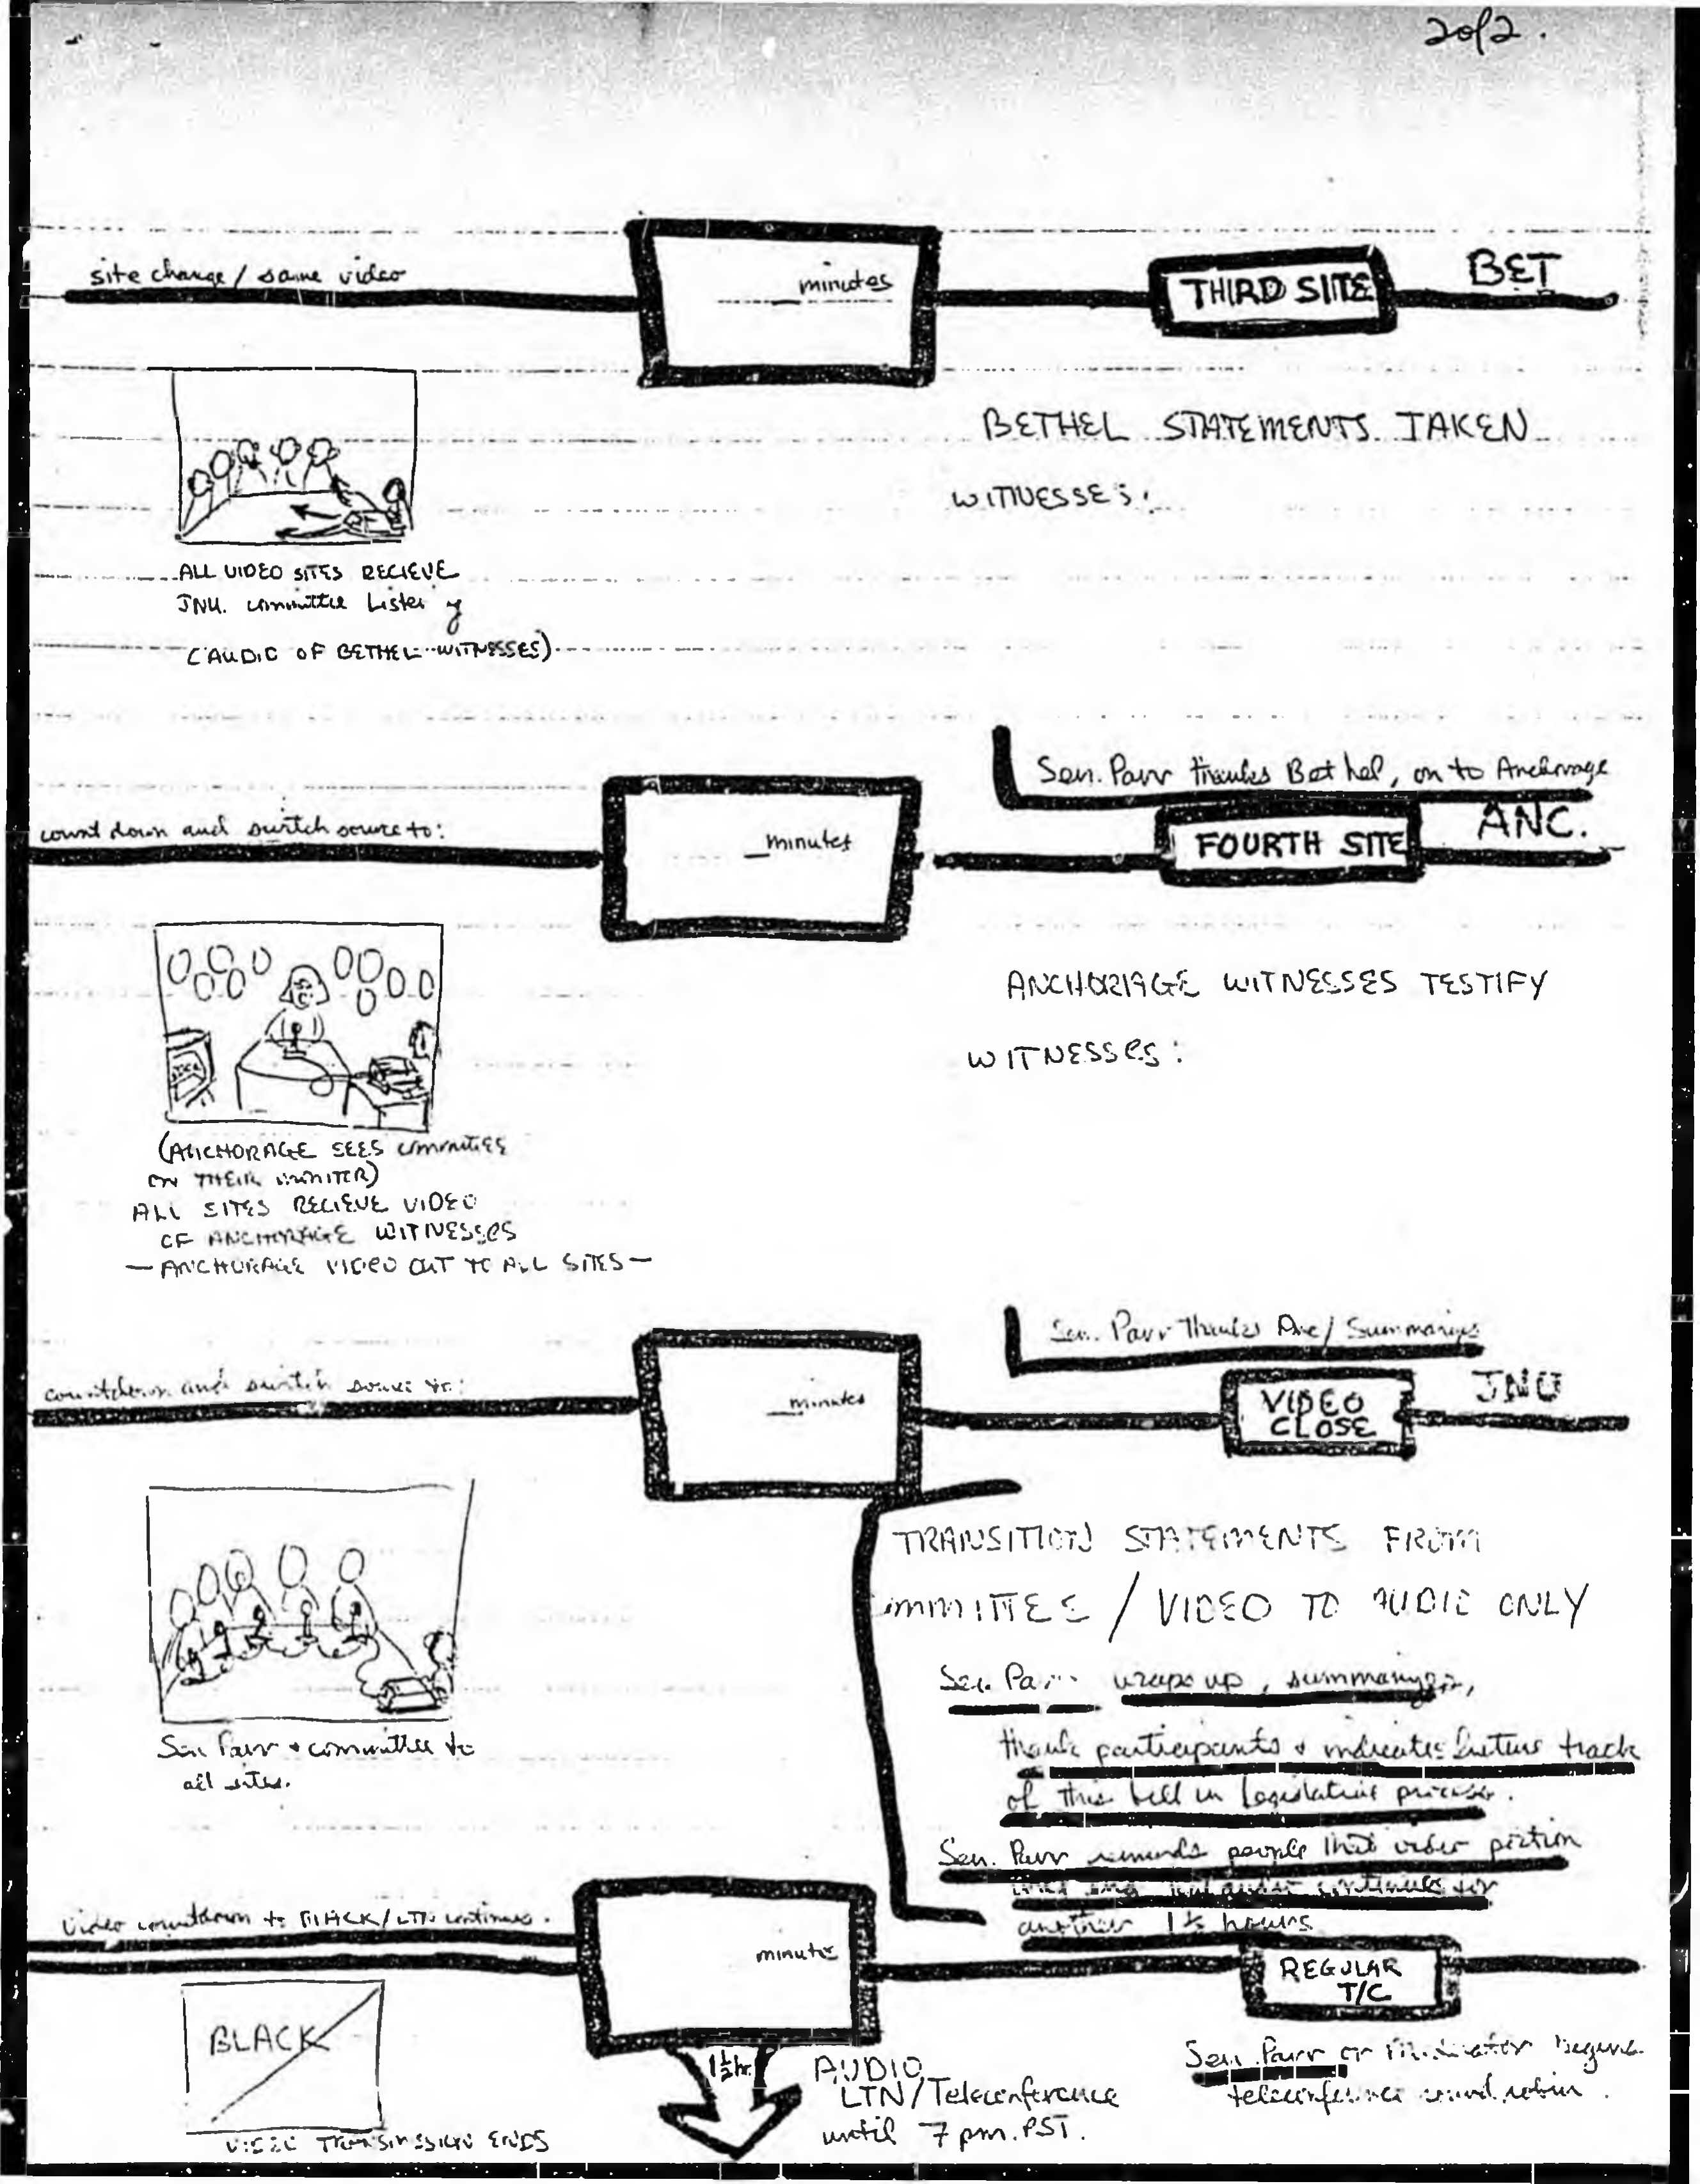 2 of 2.
site change / same video
minutes
THIRD SITE
BET
BETHEL STATEMENTS TAKEN
WITNESSES:
ALL VIDEO SITES RECIEVE
JNU. committee Listening
(AUDIO OF BETHEL WITNESSES)
Sen. Parr thanks Bethel, on to Anchorage
count down and switch source to:
_minutes
FOURTH SITE
ANC.
ANCHORAGE WITNESSES TESTIFY
WITNESSES:
(ANCHORAGE SEES committee
ON THEIR MONITER)
ALL SITES RECIEVE VIDEO
OF ANCHORAGE WITNESSES
— ANCHORAGE VIDEO OUT TO ALL SITES —
Sen. Parr Thanks Anc / Summarizes
countdown and switch source to:
_minutes
VIDEO
CLOSE
JNU
TRANSITION STATEMENTS FROM
COMMITTEE / VIDEO TO AUDIO ONLY
Sen. Parr wraps up, summarizes,
thank participants + indicates future track
of this bill in Legislative process.
Sen Parr + committee to
all sites.
Sen. Parr reminds people that video portion
but audio continues for
another 1½ hours
Video countdown to BLACK / LTN continues.
minutes
REGULAR
T/C
BLACK
1½ hr.
AUDIO
LTN/Teleconference
until 7 pm. PST.
Sen. Parr or Moderator begins
teleconference round robin.
VIDEO TRANSMISSION ENDS